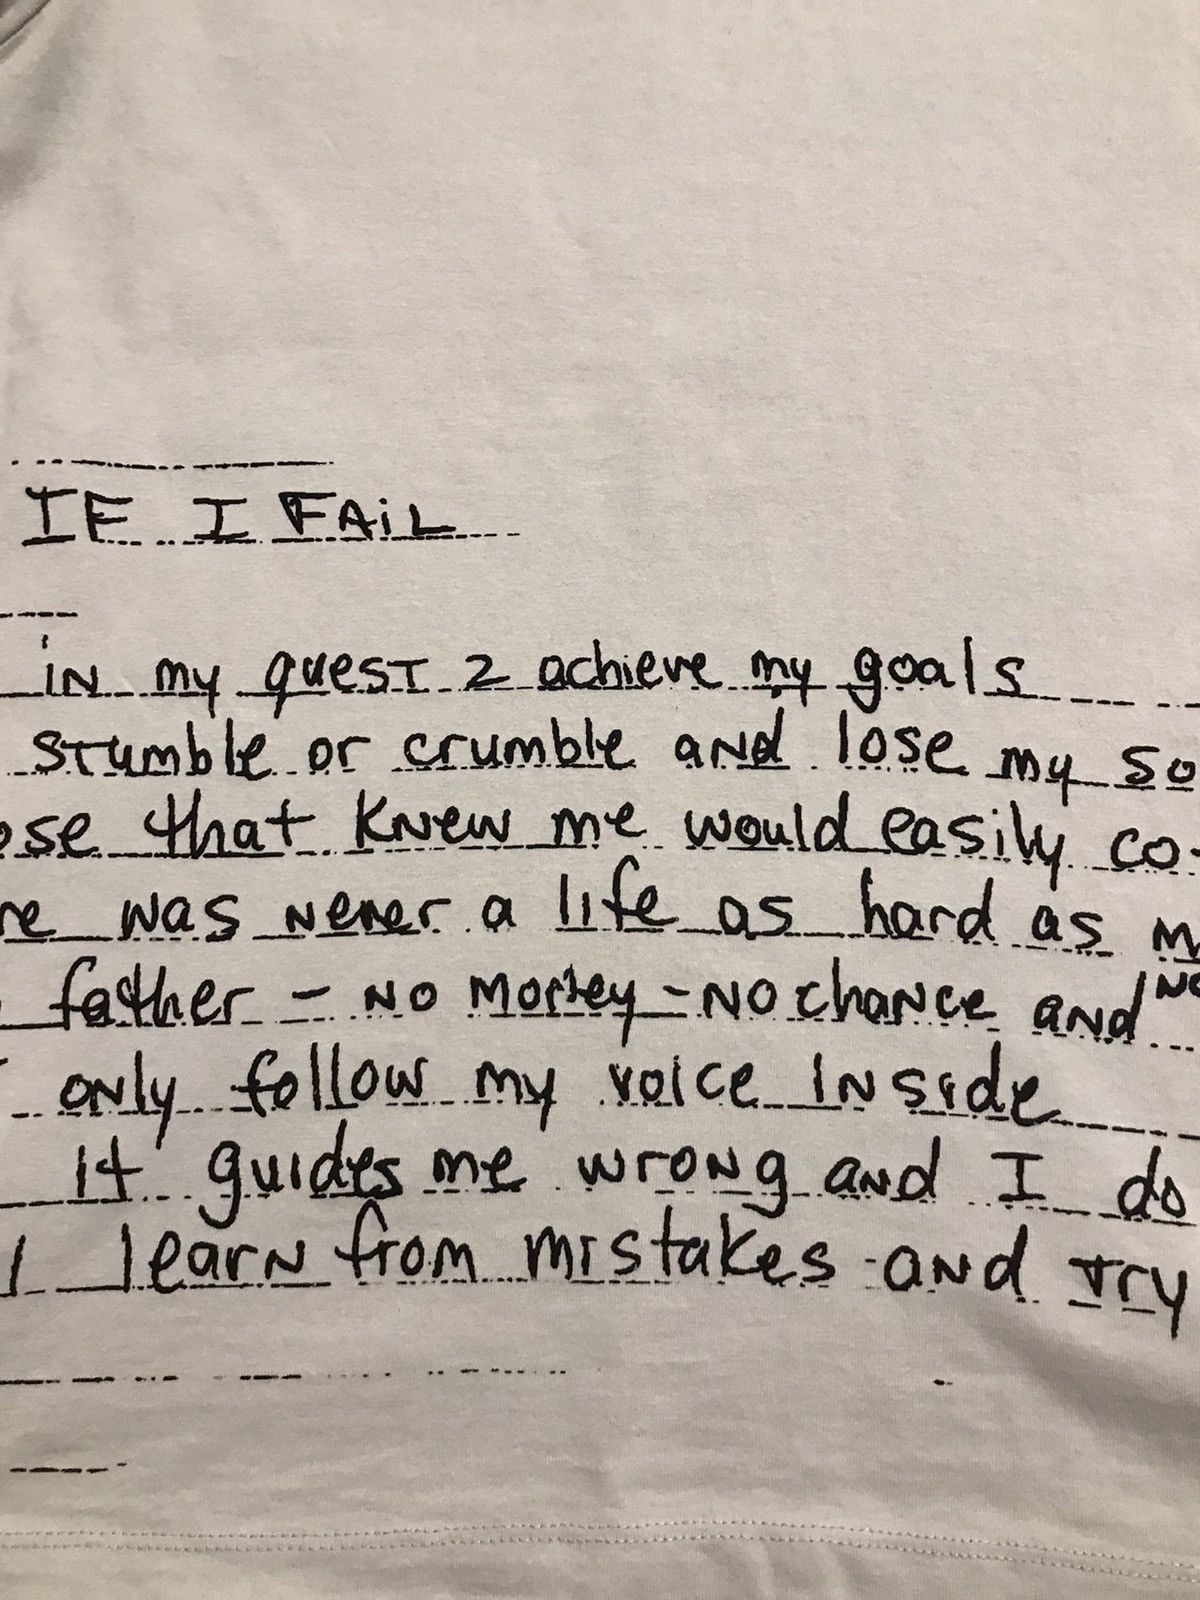 IF I FAIL
in my quest 2 achieve my goals
stumble or crumble and lose my so
ose that knew me would easily co-
re was never a life as hard as m
father - no money - no chance and no
only follow my voice inside
it guides me wrong and I do
l learn from mistakes and try